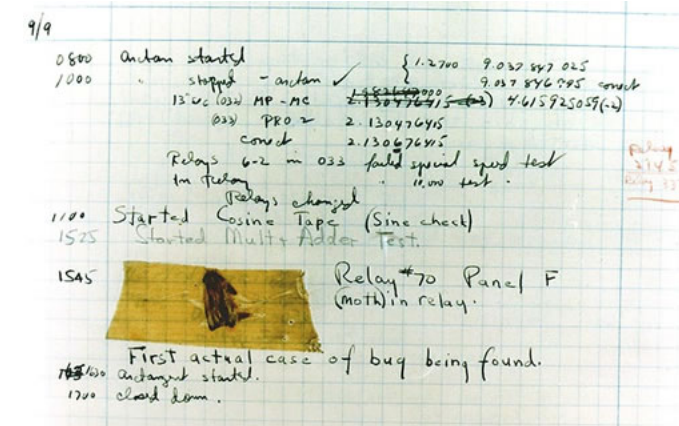 9/9
0800 Antan started { 1.2700 9.037 847 025
1000 " stopped - antan ✓ 9.037 846 795 conect
13"uc (032) MP-MC 2.130476415 (-3) 4.615925059(-2)
(033) PRO 2 2.130476415
conect 2.130676415
Relays 6-2 in 033 failed special speed test
In Relay " 10,000 test .
Relays changed
1100 Started Cosine Tape (Sine check)
1525 Started Mult + Adder Test.
1545 Relay #70 Panel F
(moth) in relay.
First actual case of bug being found.
1630 antangent started.
1700 closed down .
Relay
Relay